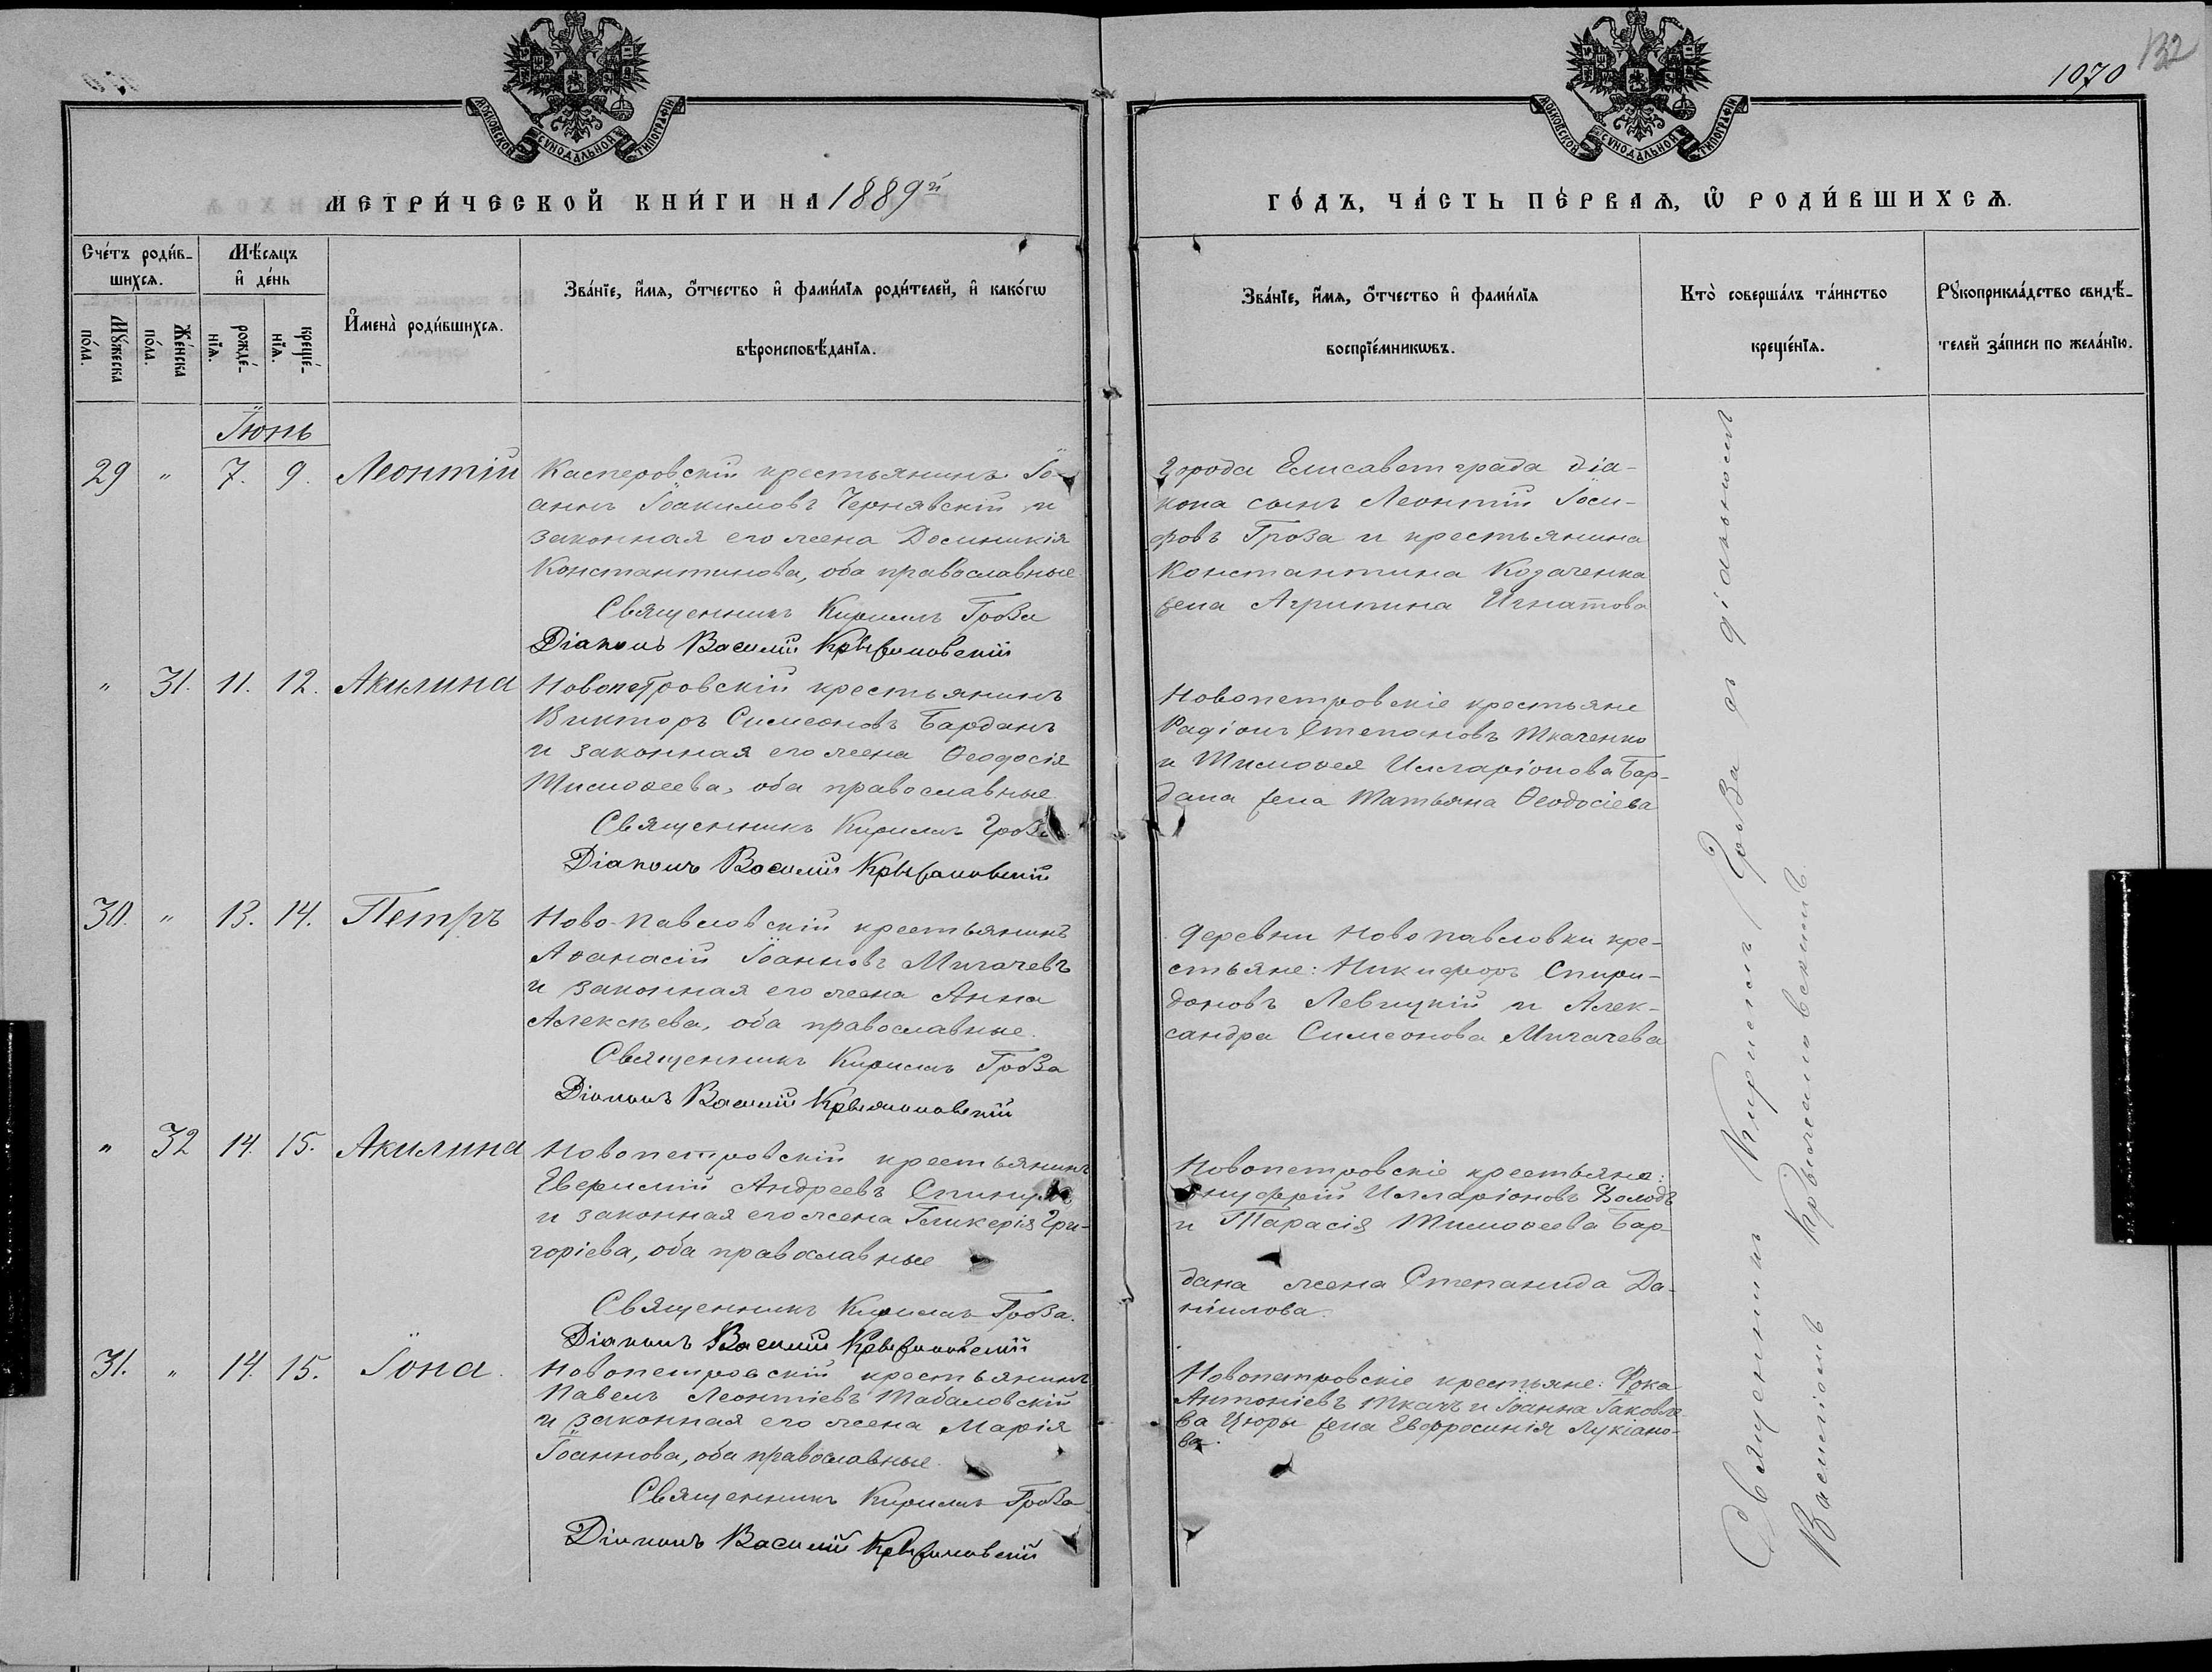 1070
132
МОСКОВСКОЙ СУНОДАЛЬНОЙ ТИПОГРАФІИ
МОСКОВСКОЙ СУНОДАЛЬНОЙ ТИПОГРАФІИ
МЕТРИ́ЧЕСКОЙ КНИ́ГИ НА 1889й
ГО́ДЪ, ЧА́СТЬ ПЕ́РВАѦ, Ѡ РОДИ́ВШИХСѦ.
Сче́тъ роди́в-
шихсѧ.
Мꙋ́жеска
по́ла.
Же́нска
по́ла.
Мѣ́сѧцъ
и҆ де́нь
рожде́-
нїѧ.
креще́-
нїѧ.
И҆мена̀ роди́вшихсѧ.
Зва́нїе, и҆́мѧ, ѻ҆́тчество и҆ фами́лїѧ роди́телей, и҆ како́гѡ
вѣроисповѣ́данїѧ.
Зва́нїе, и҆́мѧ, ѻ҆́тчество и҆ фами́лїѧ
воспрїе́мникѡвъ.
Кто̀ соверша́лъ та́инство
креще́нїѧ.
Рꙋкоприкла́дство свидѣ́-
телей за́писи по жела́нїю.
Іюнь
29 " 7. 9. Леонтій
Касперовскій крестьянинъ Іо-
аннъ Іоакимовъ Чернявскій и
законная его жена Домникія
Константинова, оба православные
Священникъ Кириллъ Гроза
Діаконъ Василій Крыжановскій
Города Елисаветграда діа-
кона сынъ Леонтій Іоси-
фовъ Гроза и крестьянина
Константина Козаченка
жена Агрипина Игнатова
" 31. 11. 12. Акилина
Новопетровскій крестьянинъ
Викторъ Симеоновъ Барданъ
и законная его жена Ѳеодосія
Тимоѳеева, оба православные
Священникъ Кириллъ Гроза
Діаконъ Василій Крыжановскій
Новопетровскіе крестьяне
Радіонъ Степановъ Ткаченко
и Тимоѳея Илларіонова Бар-
дана жена Татьяна Ѳеодосіева
30. " 13. 14. Петръ
Ново-Павловскій крестьянинъ
Аѳанасій Іоанновъ Мигачевъ
и законная его жена Анна
Алексѣева, оба православные.
Священникъ Кириллъ Гроза
Діаконъ Василій Крыжановскій
Деревни Новопавловки кре-
стьяне: Никифоръ Спири-
доновъ Левицкій и Алек-
сандра Симеонова Мигачева
" 32 14. 15. Акилина
Новопетровскій крестьянинъ
Андреевъ
и законная его жена Гликерія Гри-
горіева, оба православные
Священникъ Кириллъ Гроза.
Діаконъ Василій Крыжановскій
Новопетровскіе крестьяне:
Онуфрій Илларіоновъ
и Тарасія Тимоѳеева Бар-
дана жена Степанида Да-
ніилова.
31. " 14. 15. Іона.
Новопетровскій крестьянинъ
Павелъ Леонтіевъ Табаловскій
и законная его жена Марія
Іоаннова, оба православные.
Священникъ Кириллъ Гроза
Діаконъ Василій Крыжановскій
Новопетровскіе крестьяне: Фока
Антоніевъ Ткачъ и Іоанна Іаковле-
ва Цюры жена Евфросинія Лукіано-
ва.
Священникъ Кириллъ Гроза съ діакономъ
Василіемъ Крыжановскимъ.